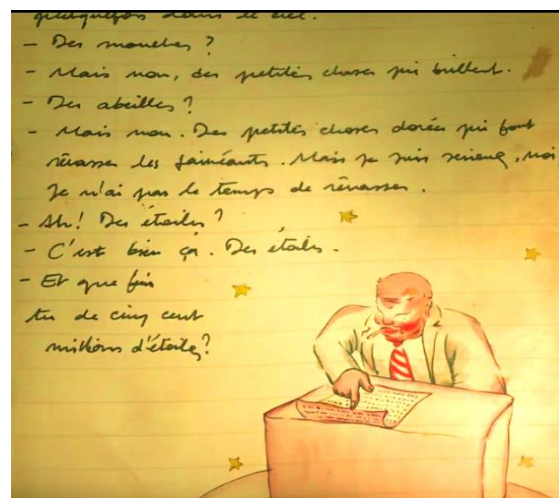 quelquefois dans le ciel.
- Des mouches ?
- Mais non, des petites choses qui brillent.
- Des abeilles ?
- Mais non. Des petites choses dorées qui font
rêvasser les fainéants. Mais je suis sérieux, moi
Je n'ai pas le temps de rêvasser.
- Ah! Des étoiles ?
- C'est bien ça. Des étoiles.
- Et que fais
tu de cinq cent
millions d'étoiles?